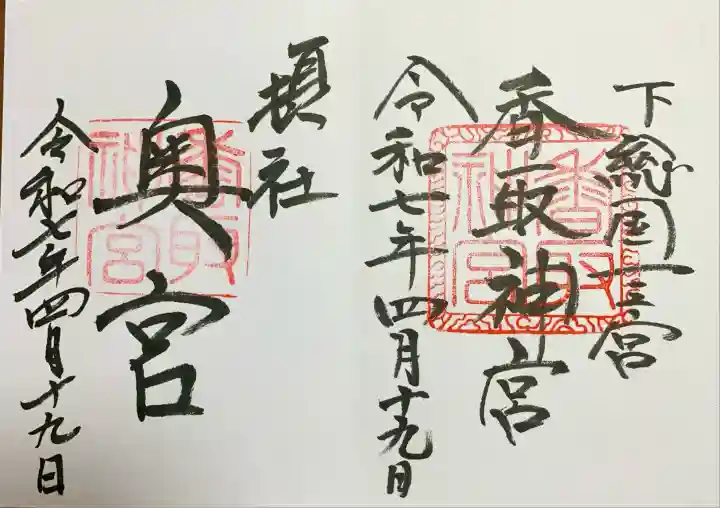 下総国一之宮
香取神宮
令和七年四月十九日
香取神宮
頓社
奥宮
令和七年四月十九日
香取神宮